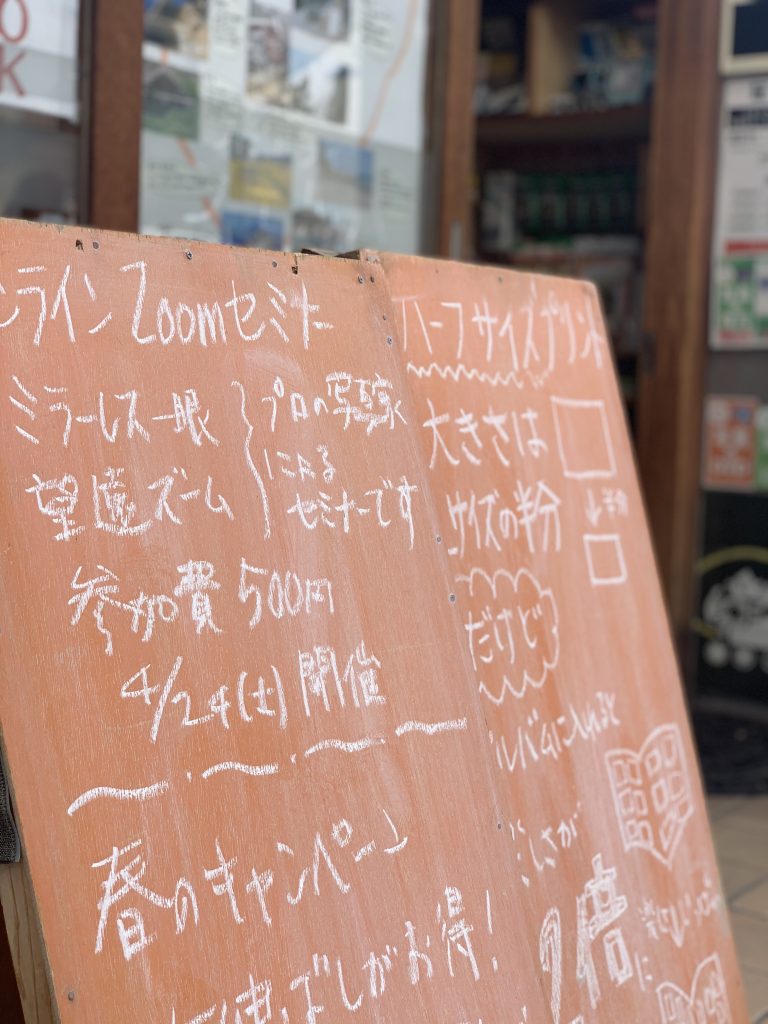 ンラインZoomセミナー
ミラーレス一眼
望遠ズーム
プロの写真家
による
セミナーです
参加費 500円
4/24(土)開催
春のキャンペーン
ばしがお得!
ハーフサイズプリント
大きさは
サイズの半分
↓半分
だけど
ルバムに入れると
しさが
倍に